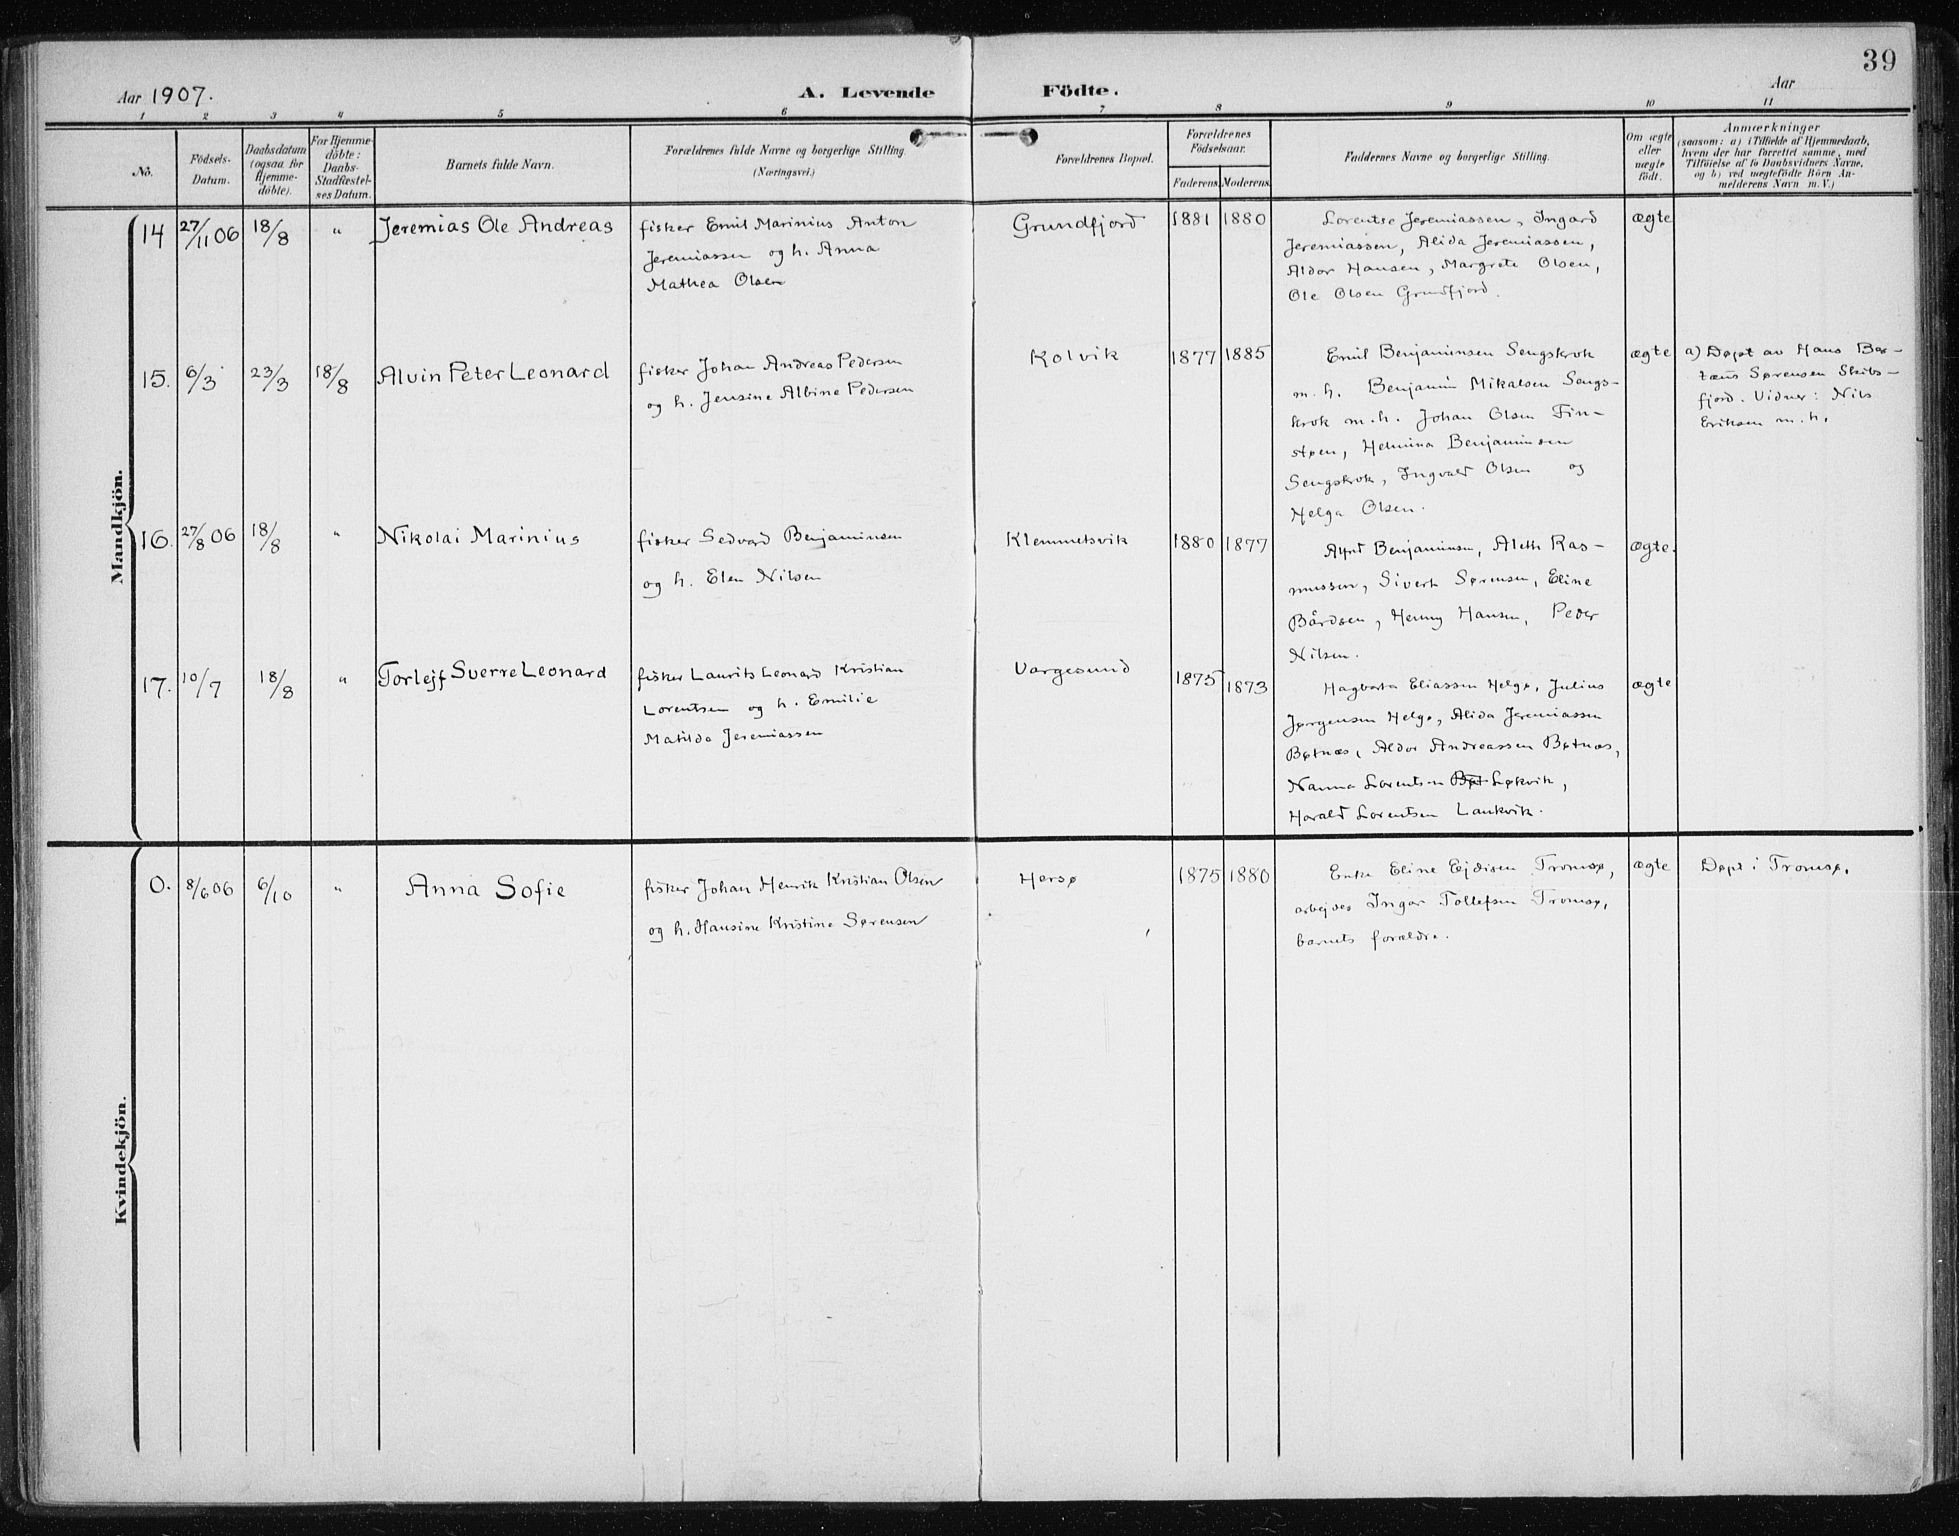 39
Aar 1907.
A. Levende Födte.
Aar
1 2 3 4 5 6 7 8 9 10 11
No.
Födsels-
Datum.
Daabsdatum
(ogsaa for
Hjemme-
döbte).
For Hjemme-
döbte:
Daabs-
Stadfæstel-
ses Datum.
Barnets fulde Navn.
Forældrenes fulde Navne og borgerlige Stilling.
(Næringsvei.)
Forældrenes Bopæl.
Forældrenes
Födselsaar.
Faderens. Moderens.
Faddernes Navne og borgerlige Stilling.
Om ægte
eller
uægte
födt.
Anmærkninger
(saasom: a) i Tilfælde af Hjemmedaab,
hvem der har forrettet samme, med
Tilföielse af to Daabsvidners Navne,
og b) ved uægtefödte Börn An-
melderens Navn m. V.)
Mandkjön.
14 27/11 06 18/8 " Jeremias Ole Andreas
fisker Emil Marinius Anton
Jeremiassen og h. Anna
Mathea Olsen
Grundfjord
1881 1880
Lorentse Jeremiassen, Ingard
Jeremiassen, Alida Jeremiassen,
Aldor Hansen, Margrete Olsen,
Ole Olsen Grundfjord.
ægte
15. 6/3 23/3 18/8 Alvin Peter Leonard
fisker Johan Andreas Pedersen
og h. Jensine Albine Pedersen
Kolvik
1877 1885
Emil Benjaminsen Sengskrok
m. h. Benjamin Mikalsen Sengs-
krok m. h. Johan Olsen Fin-
støen, Helmina Benjaminsen
Sengskrok, Ingvald Olsen og
Helga Olsen.
ægte
a) Døpt av Hans Bas-
tæus Sørensen Skibs-
fjord. Vidner: Nils
Eriksen m. h.
16. 27/8 06 18/8 " Nikolai Marinius
fisker Sedvard Benjaminsen
og h. Elen Nilsen
Klemmetsvik
1880 1877
Benjaminsen, Aleth Ras-
mussen, Sivert Sørensen, Eline
Bårdsen, Henny Hansen, Peder
Nilsen.
ægte.
17. 10/7 18/8 " Torlejf Sverre Leonard
fisker Laurits Leonard Kristian
Lorentsen og h. Emilie
Matilda Jeremiassen
Vargesund
1875 1873
Hagbarta Eliassen Helgø, Julius
Jørgensen Helgø, Alida Jeremiassen
Bøtnæs, Aldor Andreassen Bøtnæs,
Nanna Lorentsen Bøt Løkvik,
Harald Lorentsen Lankvik.
ægte
Kvindekjön.
0. 8/6 06 6/10 " Anna Sofie
fisker Johan Henrik Kristian Olsen
og h. Hansine Kristine Sørensen
Hersø
1875 1880
Enke Eline Ejdisen Tromsø,
arbejder Ingar Tollefsen Tromsø,
barnets forældre.
ægte
Døpt i Tromsø.